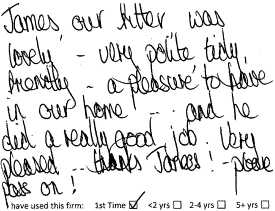 James, our fitter was
lovely - very polite tidy,
friendly - a pleasure to have
in our home ... and he
did a really good job. Very
pleased ... thanks James! - please
pass on!
I have used this firm: 1st Time ☑ <2 yrs ☐ 2-4 yrs ☐ 5+ yrs ☐